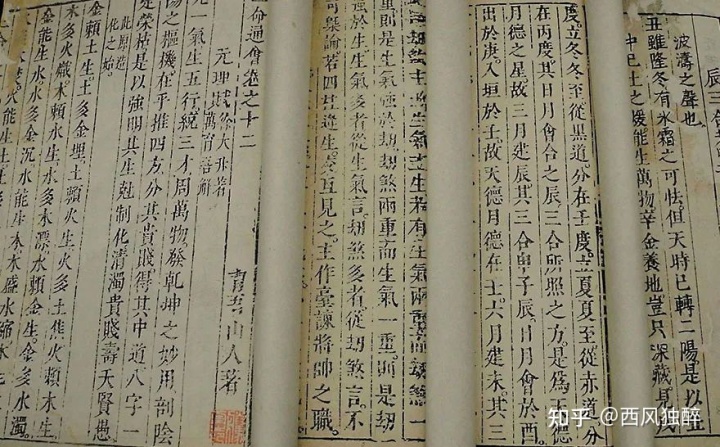 波濤之聲也
丑雖隆冬有氷霜之可怯但天時已轉二陽是以
中巳土之煖能生萬物辛金養地豈只深藏
度立冬冬至從黑道分在子度立夏夏至從赤道分
在丙度其日月會合之辰三合所照之方是為天
月德之星故三月建辰其三合申子辰日月會於酉
出於庚入垣於壬故天德月德在壬六月建未其三
生氣主生若有生氣兩重刼煞一
重則是生氣強於刼刼煞兩重而生氣一重則是刼
強於生生氣多者從生氣言刼煞多者從刼煞言不
可槩論若四柱逢生亥互見之主作臺諫將帥之職
命通會卷之十二
育吾山人著
元理賦 徐大升著 萬育吾解
一氣生五行統三才周萬物發乾坤之妙用剖陰
陽之樞機在乎推四方分其貴賤得其中道八字一
定榮枯是以強明其生尅制化清濁貴賤壽夭賢愚
此原造
化之始
金賴土生土多金埋土賴火生火多土焦火賴木生
木多火熾木賴水生水多木漂水賴金生金多水濁
金能生水水多金沉水能生木木盛水縮木
知乎 @西风独醉